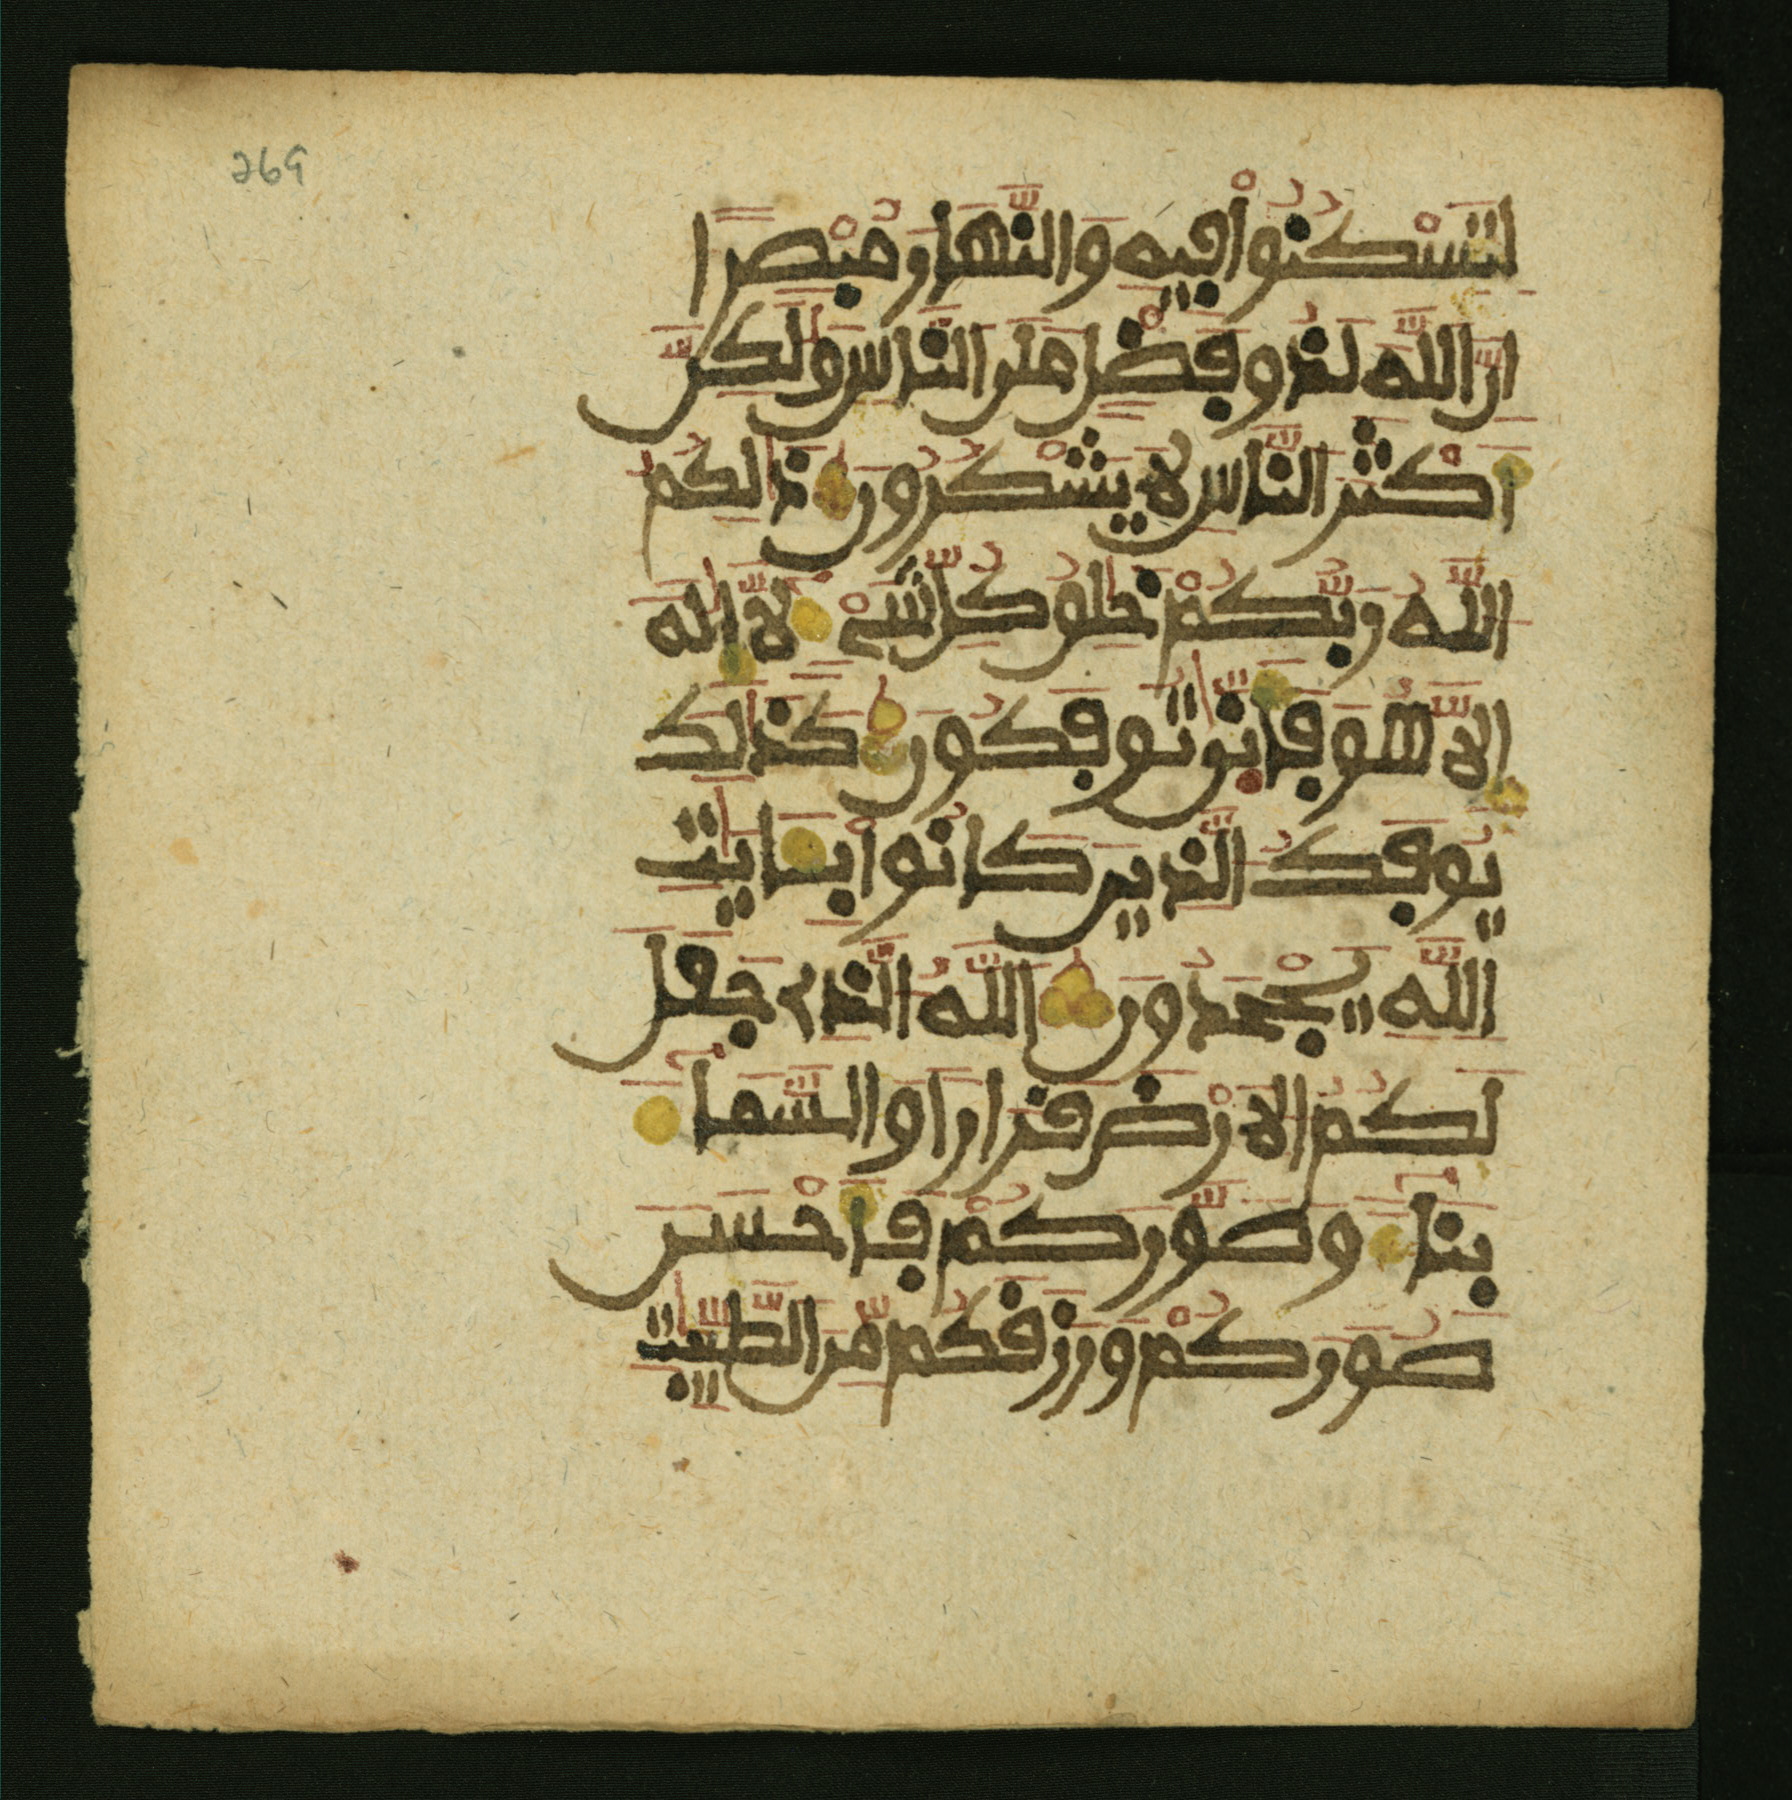 269
لِتَسْكُنُواْ فِيهِ وَالنَّهَارَ مُبْصِرًا
إِنَّ اللَّهَ لَذُو فَضْلٍ عَلَى النَّاسِ وَلَٰكِنَّ
أَكْثَرَ النَّاسِ لَا يَشْكُرُونَ ذَٰلِكُمُ
اللَّهُ رَبُّكُمْ خَٰلِقُ كُلِّ شَےْءٍ لَّا إِلَٰهَ
إِلَّا هُوَ فَأَنّٰى تُوفَكُونَ كَذَٰلِكَ
يُوفَكُ الَّذِينَ كَانُواْ بِـَٔايَٰتِ
اللَّهِ يَجْحَدُونَ اللَّهُ الَّذِے جَعَلَ
لَكُمُ الَارْضَ قَرَارًا وَالسَّمَآءَ
بِنَآءً وَصَوَّرَكُمْ فَأَحْسَنَ
صُوَرَكُمْ وَرَزَقَكُم مِّنَ الطَّيِّبَٰتِ